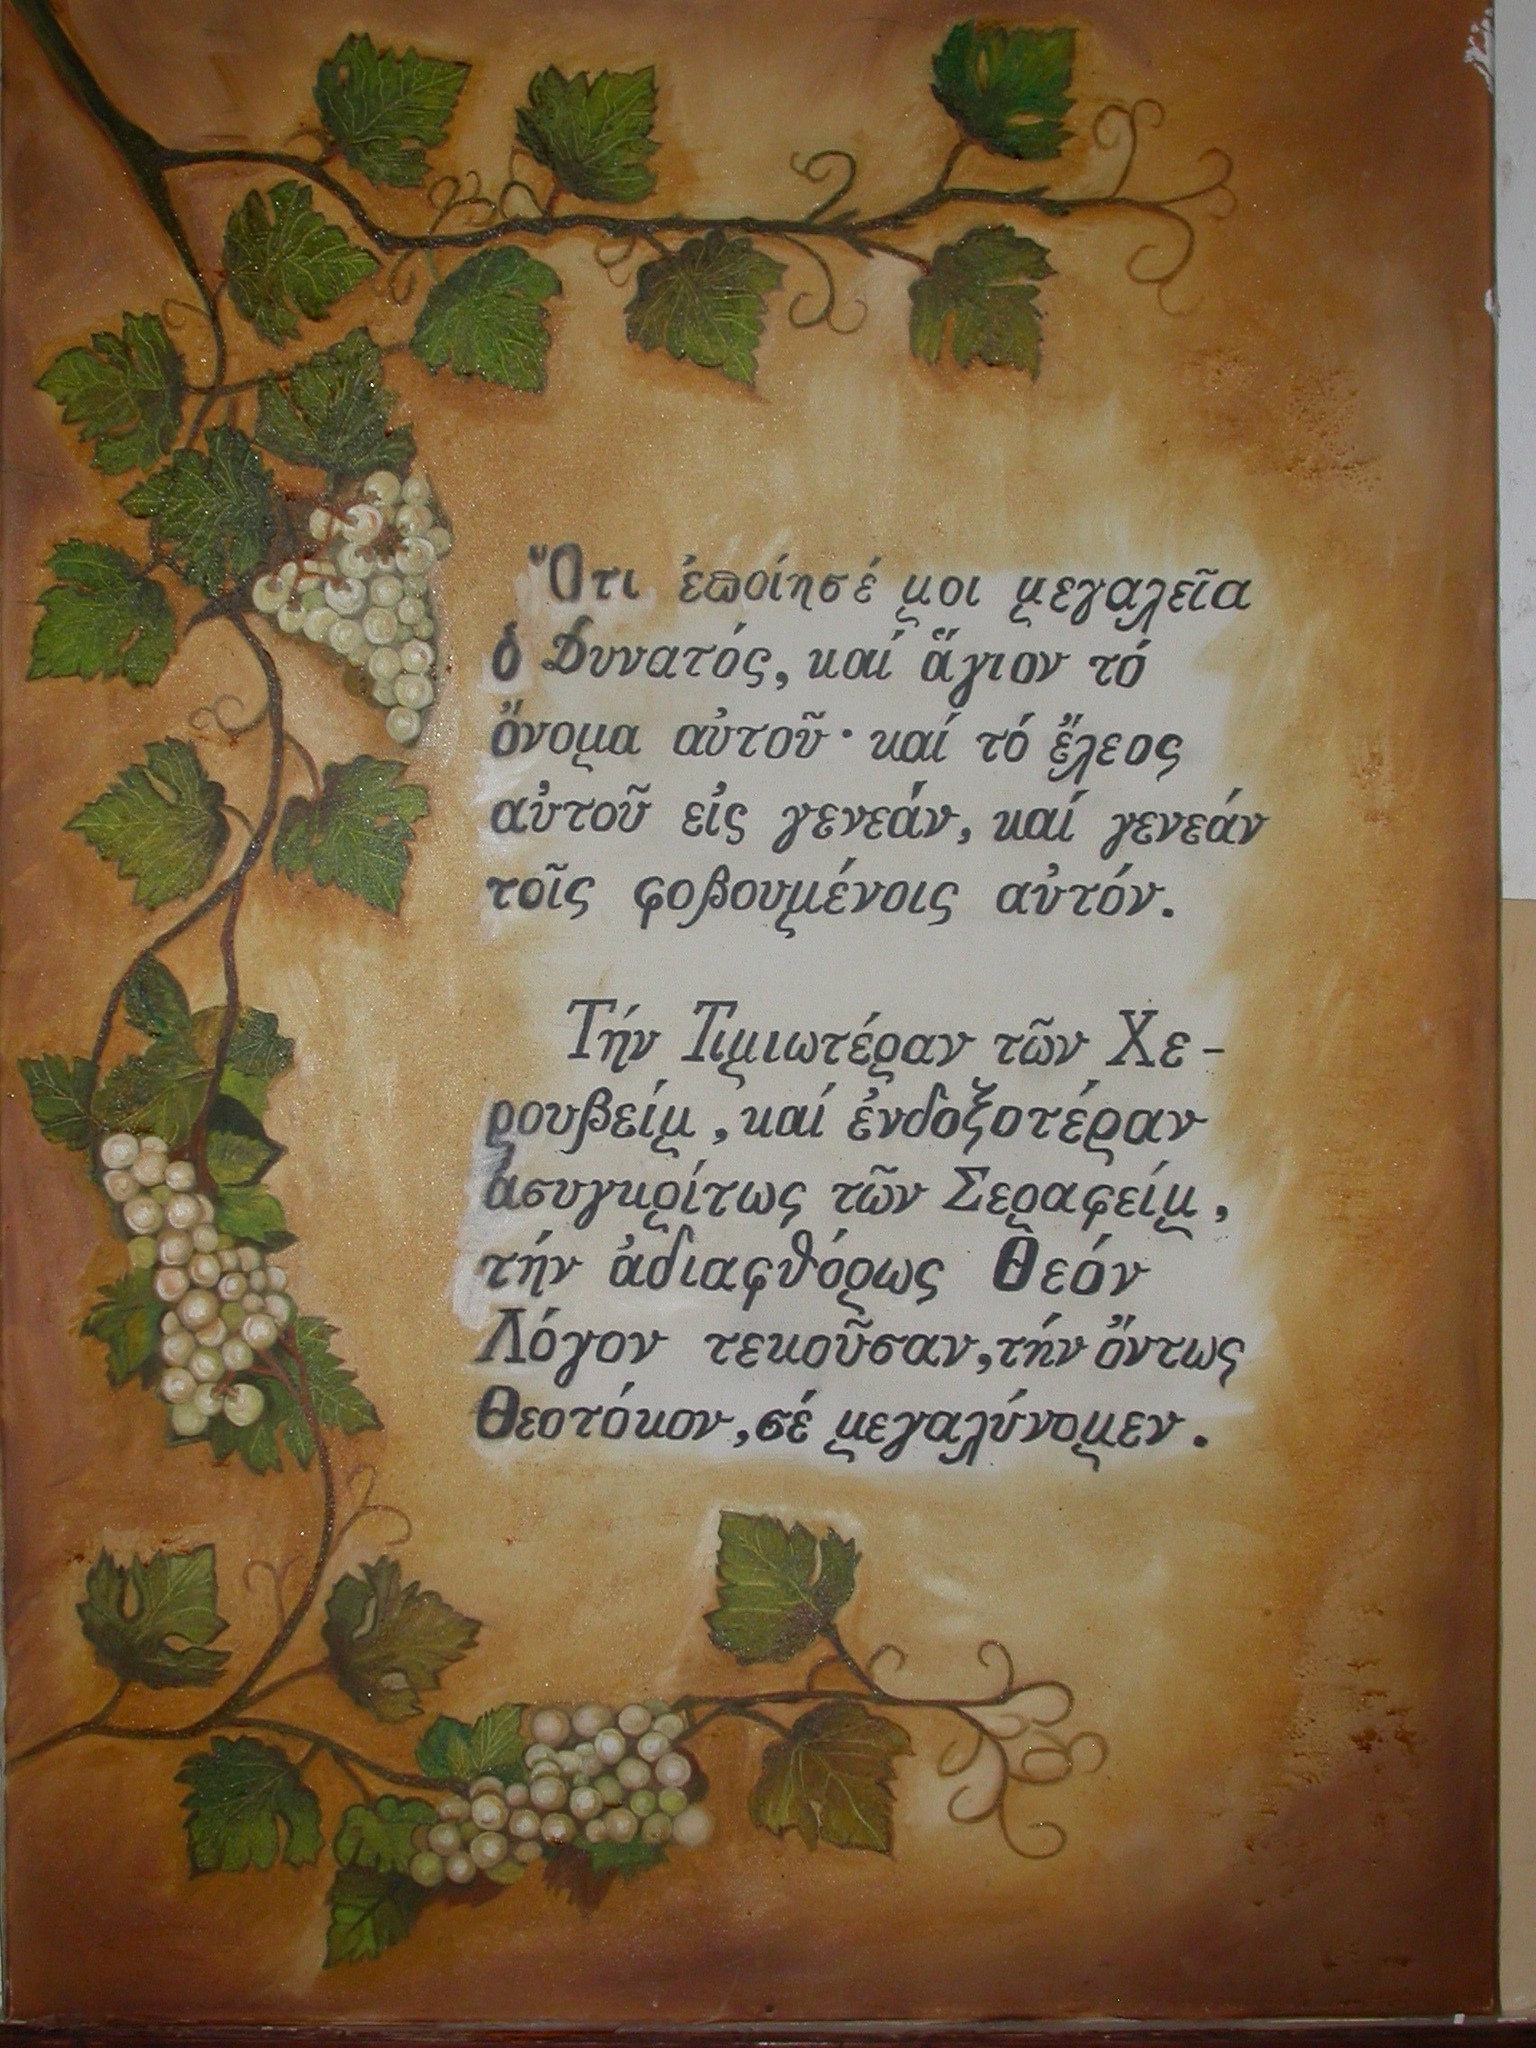 Ὅτι ἐποίησέ μοι μεγαλεῖα
ὁ Δυνατός, καί ἅγιον τό
ὄνομα αὐτοῦ· καί τό ἔλεος
αὐτοῦ εἰς γενεάν, καί γενεάν
τοῖς φοβουμένοις αὐτόν.
Τήν Τιμιωτέραν τῶν Χε-
ρουβείμ, καί ἐνδοξοτέραν
ἀσυγκρίτως τῶν Σεραφείμ,
τήν ἀδιαφθόρως Θεόν
Λόγον τεκοῦσαν, τήν ὄντως
Θεοτόκον, σέ μεγαλύνομεν.